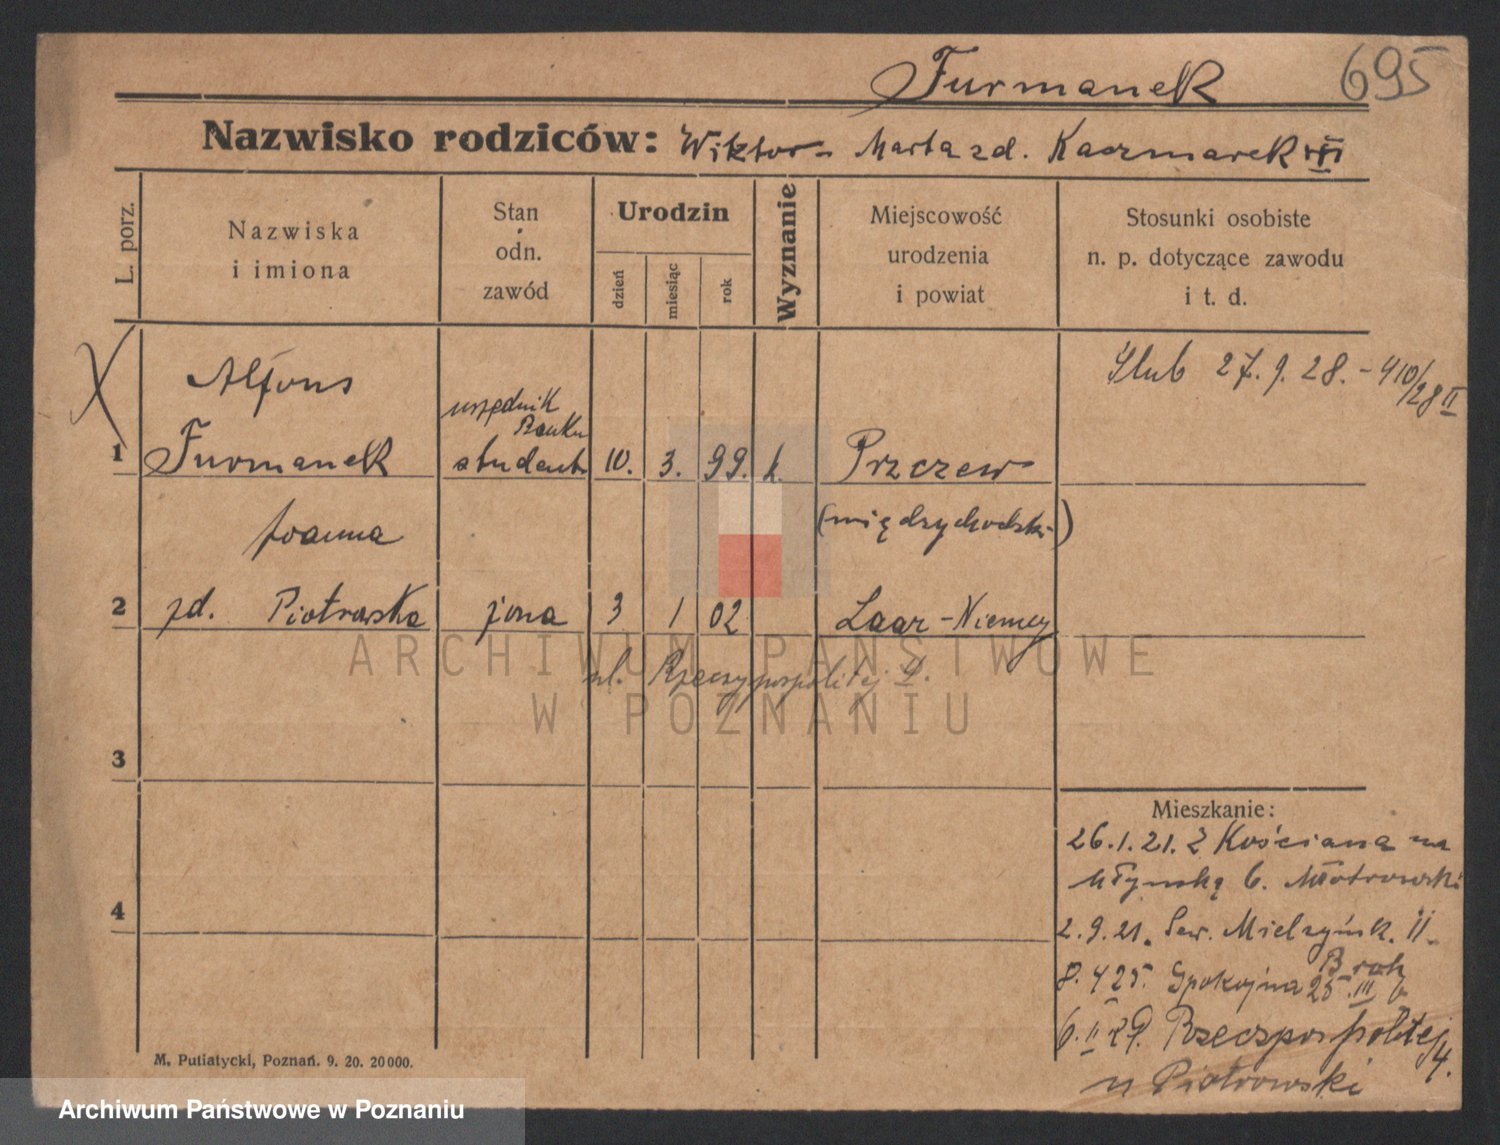 Furmanek
695
Nazwisko rodziców: Wiktor - Marta zd. Kaczmarek
L. porz.
Nazwiska
i imiona
Stan
odn.
zawód
Urodzin
dzień
miesiąc
rok
Wyznanie
Miejscowość
urodzenia
i powiat
Stosunki osobiste
n. p. dotyczące zawodu
i t. d.
X
Ślub 27.9.28. - 410/28 II
Alfons
urzędnik
Banku
1 Furmanek student 10. 3. 99. k. Przczew
(międzychodzki)
Joanna
2 zd. Piotrowska żona 3 1 02 Laar - Niemcy
ul. Rzeczypospolitej
3
Mieszkanie:
26.1.21. z Kościana na
Młyńską 6.
4
2.9.21. Sew. Mielżyńsk. II.
8.4 25. Spokojna 25 III
6.II 29. Rzeczpospolitej 4.
u Piotrowski
M. Putiatycki, Poznań. 9. 20. 20000.
ARCHIWUM PAŃSTWOWE
W POZNANIU
Archiwum Państwowe w Poznaniu